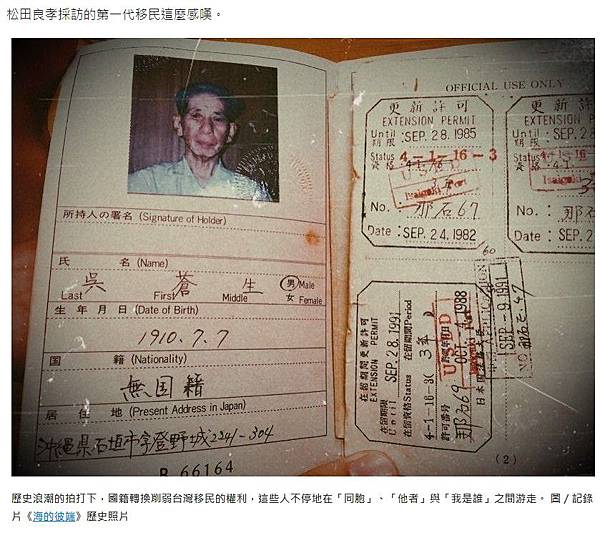 松田良孝採訪的第一代移民這麼感嘆。
所持人の署名 (Signature of Holder)
氏 名 (Name)
吳 蒼 生
Last First Middle
男 Male
女 Female
生 年 月 日 (Date of Birth)
1910.7.7
国 籍 (Nationality)
無国籍
居 住 地 (Present Address in Japan)
沖縄県石垣市字登野城2241-304
B 66164
OFFICIAL USE ONLY
更新許可
EXTENSION PERMIT
Until 期限 : SEP. 28. 1985
Status 資格 4-1-16-3
3年
No. : 那石67
Date : SEP. 24. 1982
更新許可
EXTENSION PERMIT
Until 期限 : SEP. 28.
Status 資格 4-1-16
No. : 那石
Date : SEP.
在留期間更新許可
EXTENSION PERMIT
在留期限 Until SEP. 28. 1991
在留資格 Status 4-1-16-3
在留期間 Period 3年
USED
1988
日本国法務大臣
SEP. -9. 1991
(2)
歷史浪潮的拍打下，國籍轉換削弱台灣移民的權利，這些人不停地在「同胞」、「他者」與「我是誰」之間游走。 圖／記錄
片《海的彼端》歷史照片